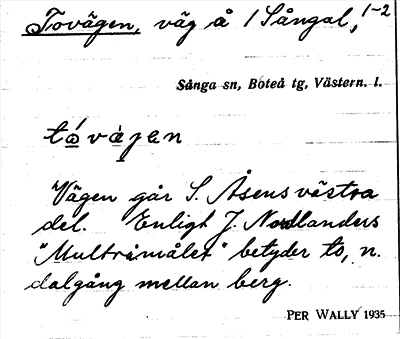 Tovägen, väg å 1 Sångal, 1-2
Sånga sn, Boteå tg, Västern. l.
tóvàgen
Vägen går S. Åsens västra
del. Enligt J. Nordlanders
"Multråmålet" betyder to, n.
dalgång mellan berg.
PER WALLY 1935